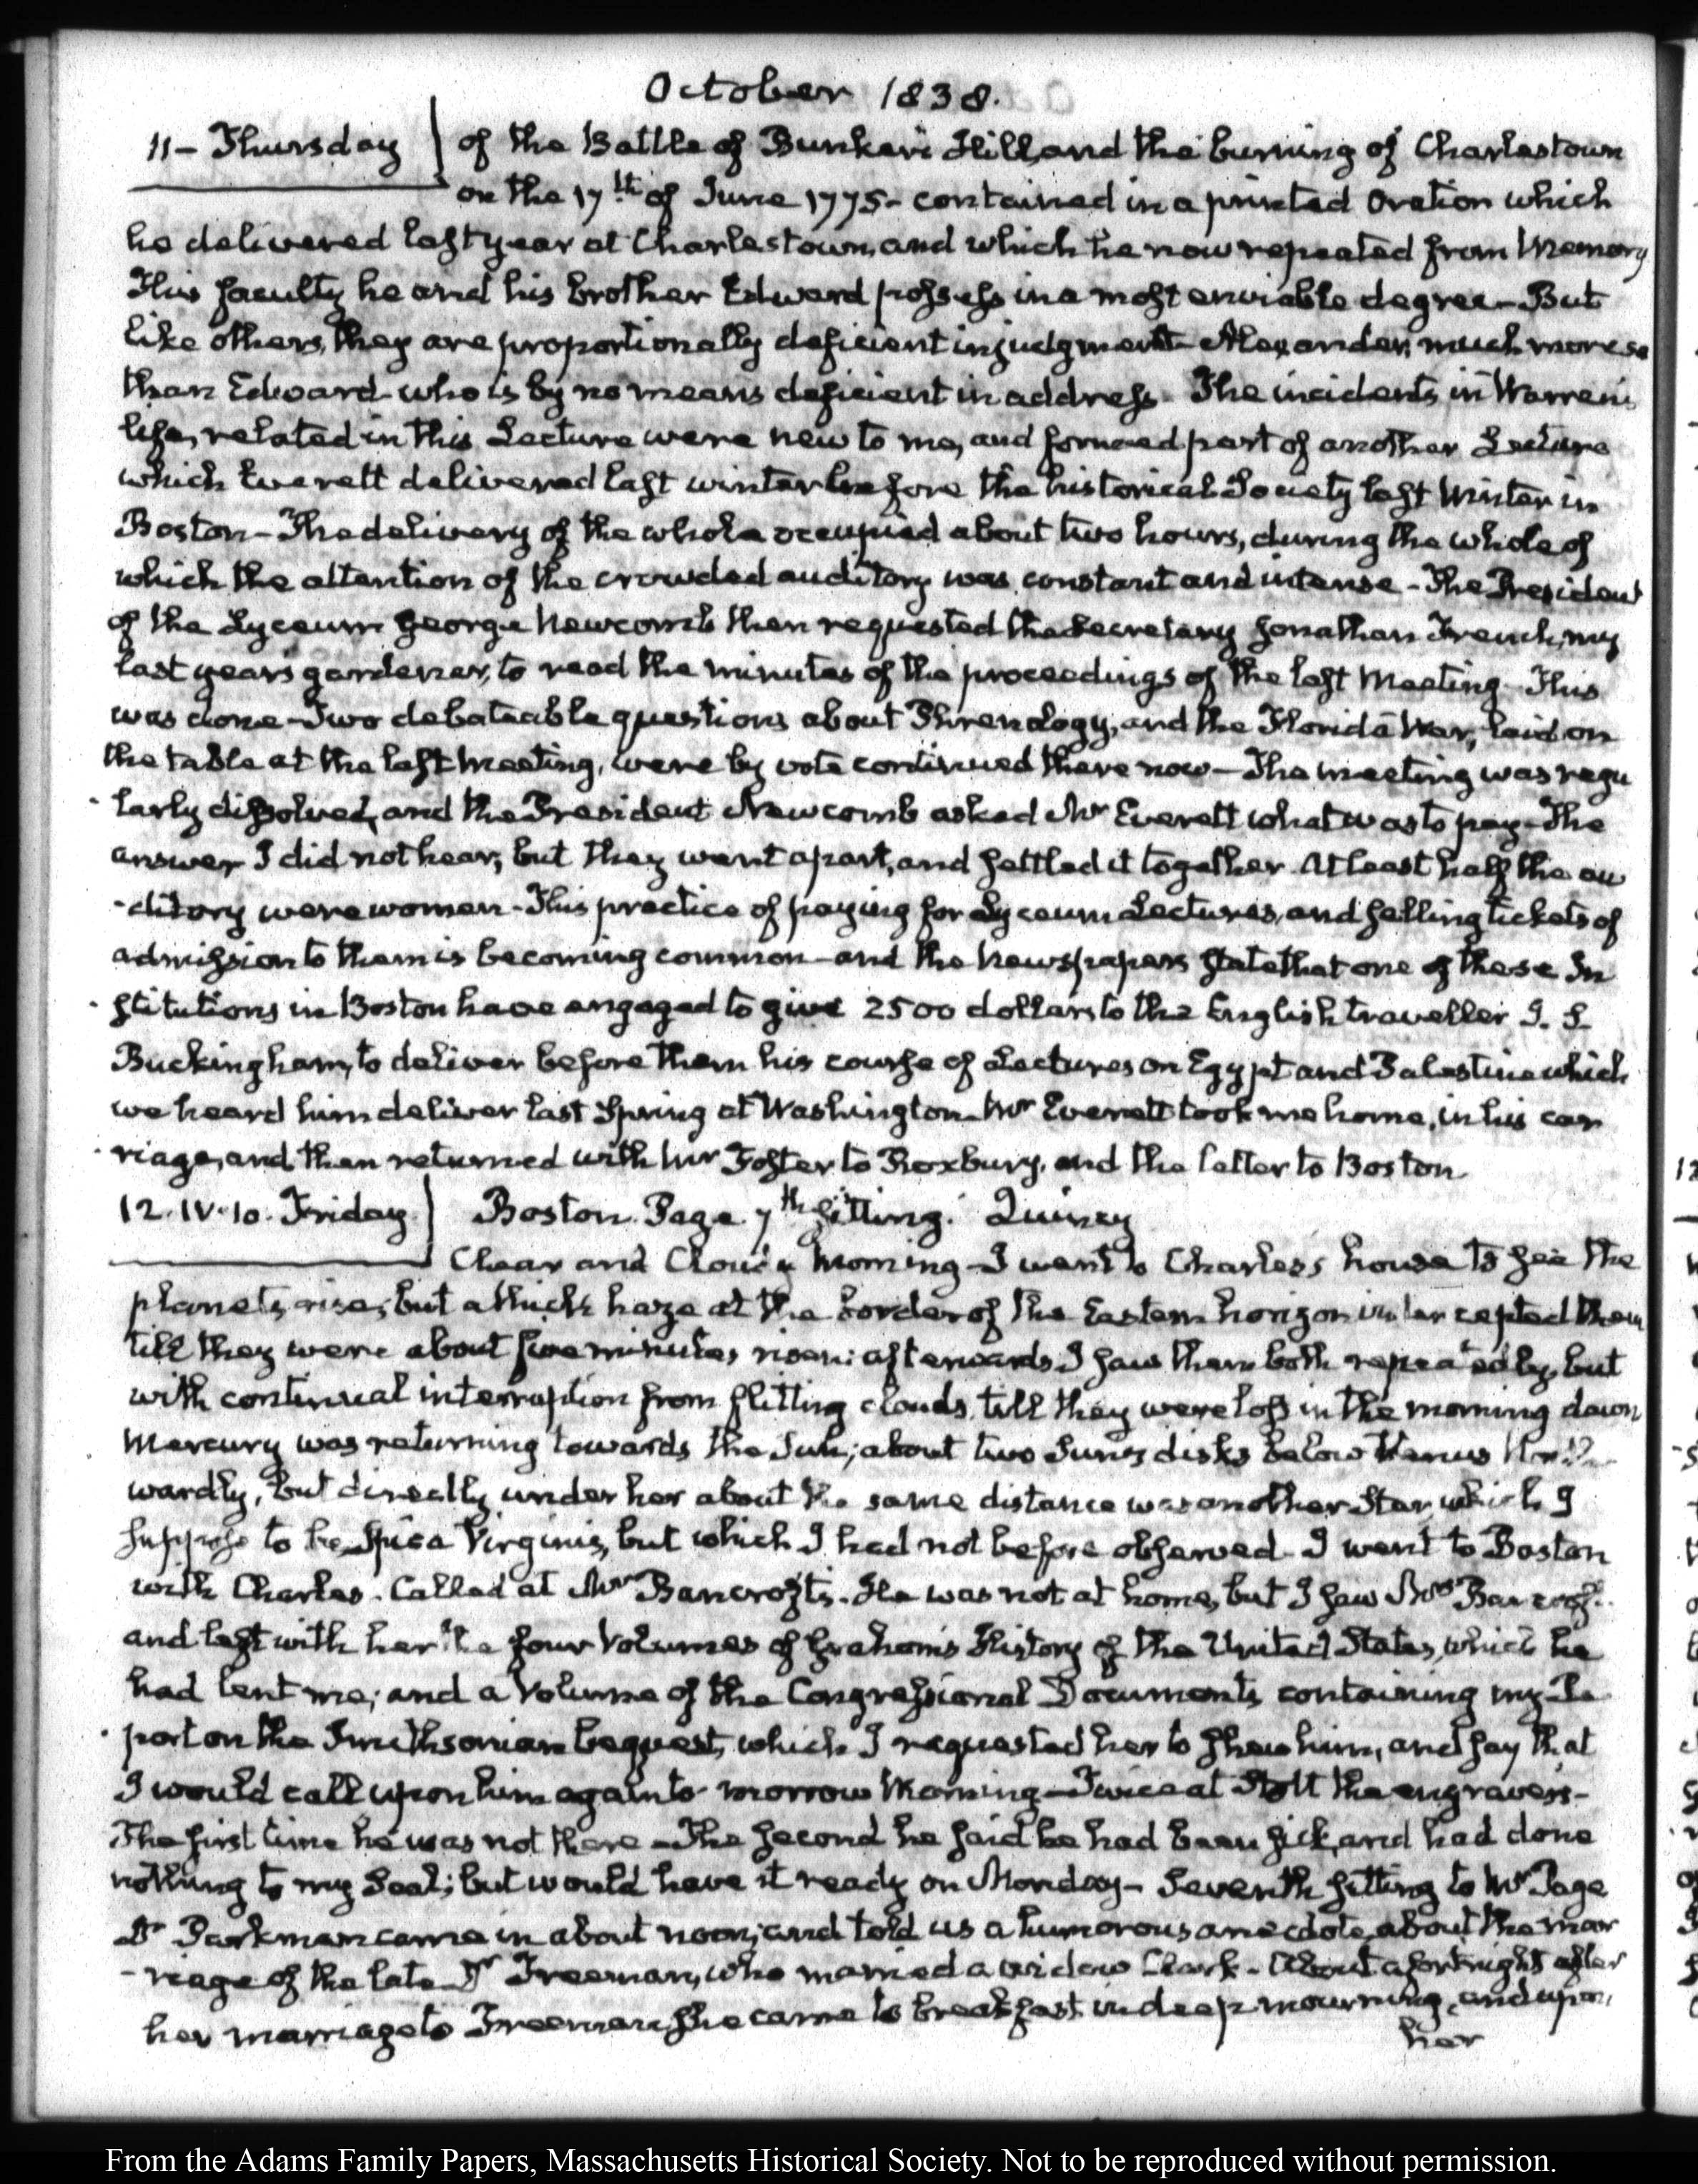 October 1838.
11 – Thursday
of the Battle of Bunker's Hill, and the burning of Charlestown
on the 17th of June 1775 – contained in a printed Oration which
he delivered last year at Charlestown, and which he now repeated from Memory
This faculty he and his brother Edward possess in a most enviable degree – But
like others, they are proportionally deficient in judgment – Alexander, much more so
than Edward – who is by no means deficient in address – The incidents in Warren's
life, related in this Lecture were new to me, and formed part of another Lecture
which Everett delivered last winter before the historical Society last Winter in
Boston – The delivery of the whole occupied about two hours, during the whole of
which the attention of the crowded auditory was constant and intense – The President
of the Lyceum George Newcomb then requested the Secretary Jonathan French, my
last year's gardener, to read the minutes of the proceedings of the last Meeting – This
was done – Two debateable questions about Phrenology, and the Florida War, laid on
the table at the last meeting, were by vote continued there now – The meeting was regu
- larly dissolved, and the President Newcomb asked Mr Everett what was to pay – The
answer I did not hear, but they went apart, and settled it together. At least half the au
- ditory were women – This practice of paying for Lyceum Lectures, and selling tickets of
admission to them is becoming common – and the Newspapers state that one of these In
- stitutions in Boston have engaged to give 2500 dollars to the English traveller J. S.
Buckingham, to deliver before them his course of Lectures on Egypt and Palestine which
we heard him deliver last Spring at Washington – Mr Everett took me home, in his car
- riage, and then returned with Mr Foster to Roxbury, and the latter to Boston
12. IV. 10. Friday
Boston. Page 7th sitting. Quincy
Clear and Cloudy Morning – I went to Charles's house to see the
planets rise; but a thick haze at the border of the Eastern horizon intercepted them
till they were about five minutes risen: afterwards I saw them both repeatedly, but
with continual interruption from flitting clouds, till they were lost in the morning dawn
Mercury was returning towards the Sun; about two Sun's disks below Venus
wardly, but directly under her about the same distance was another Star, which I
suppose to be Spica Virginis, but which I had not before observed – I went to Boston
with Charles. Called at Mr Bancroft's. He was not at home, but I saw Mrs Bancroft
and left with her the four Volumes of Graham's History of the United States, which he
had lent me; and a Volume of the Congressional Documents containing my Re
- port on the Smithsonian bequest, which I requested her to shew him, and say that
I would call upon him again to-morrow Morning – Twice at Stott the engraver's –
The first time he was not there – The second he said he had been sick, and had done
nothing to my Seal; but would have it ready on Monday – Seventh sitting to Mr Page
Dr Parkman came in about noon, and told us a humorous anecdote, about the mar
- riage of the late Dr Freeman, who married a widow Clark – About a fortnight after
her marriage to Freeman she came to breakfast in deep mourning, and upon
her
From the Adams Family Papers, Massachusetts Historical Society. Not to be reproduced without permission.